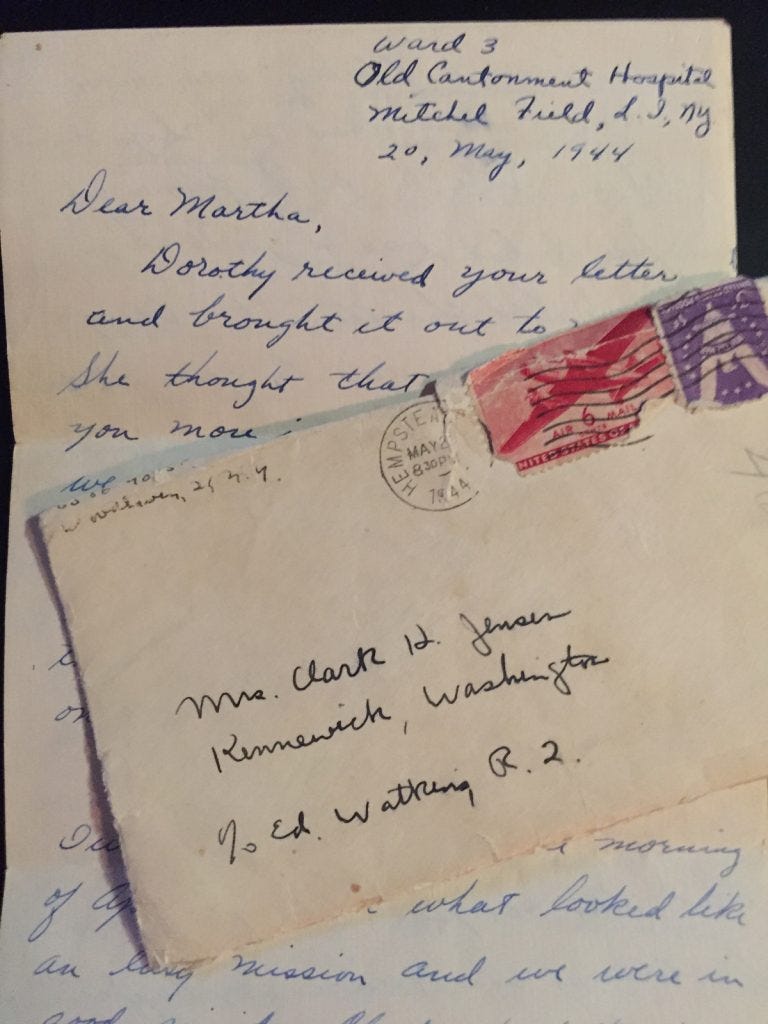 Ward 3
Old Cantonment Hospital
Mitchel Field, L.I., NY
20, May, 1944
Dear Martha,
Dorothy received your letter
and brought it out to
She thought that
you more
we
HEMPSTEAD
MAY 2
8 30 PM
1944
6
AIR MAIL
UNITED STATES OF
Woodhaven, 21 N.Y.
Mrs. Clark H. Jensen
Kennewick, Washington
c/o Ed. Watkins R. 2.
on
morning
of what looked like
an easy mission and we were in
good